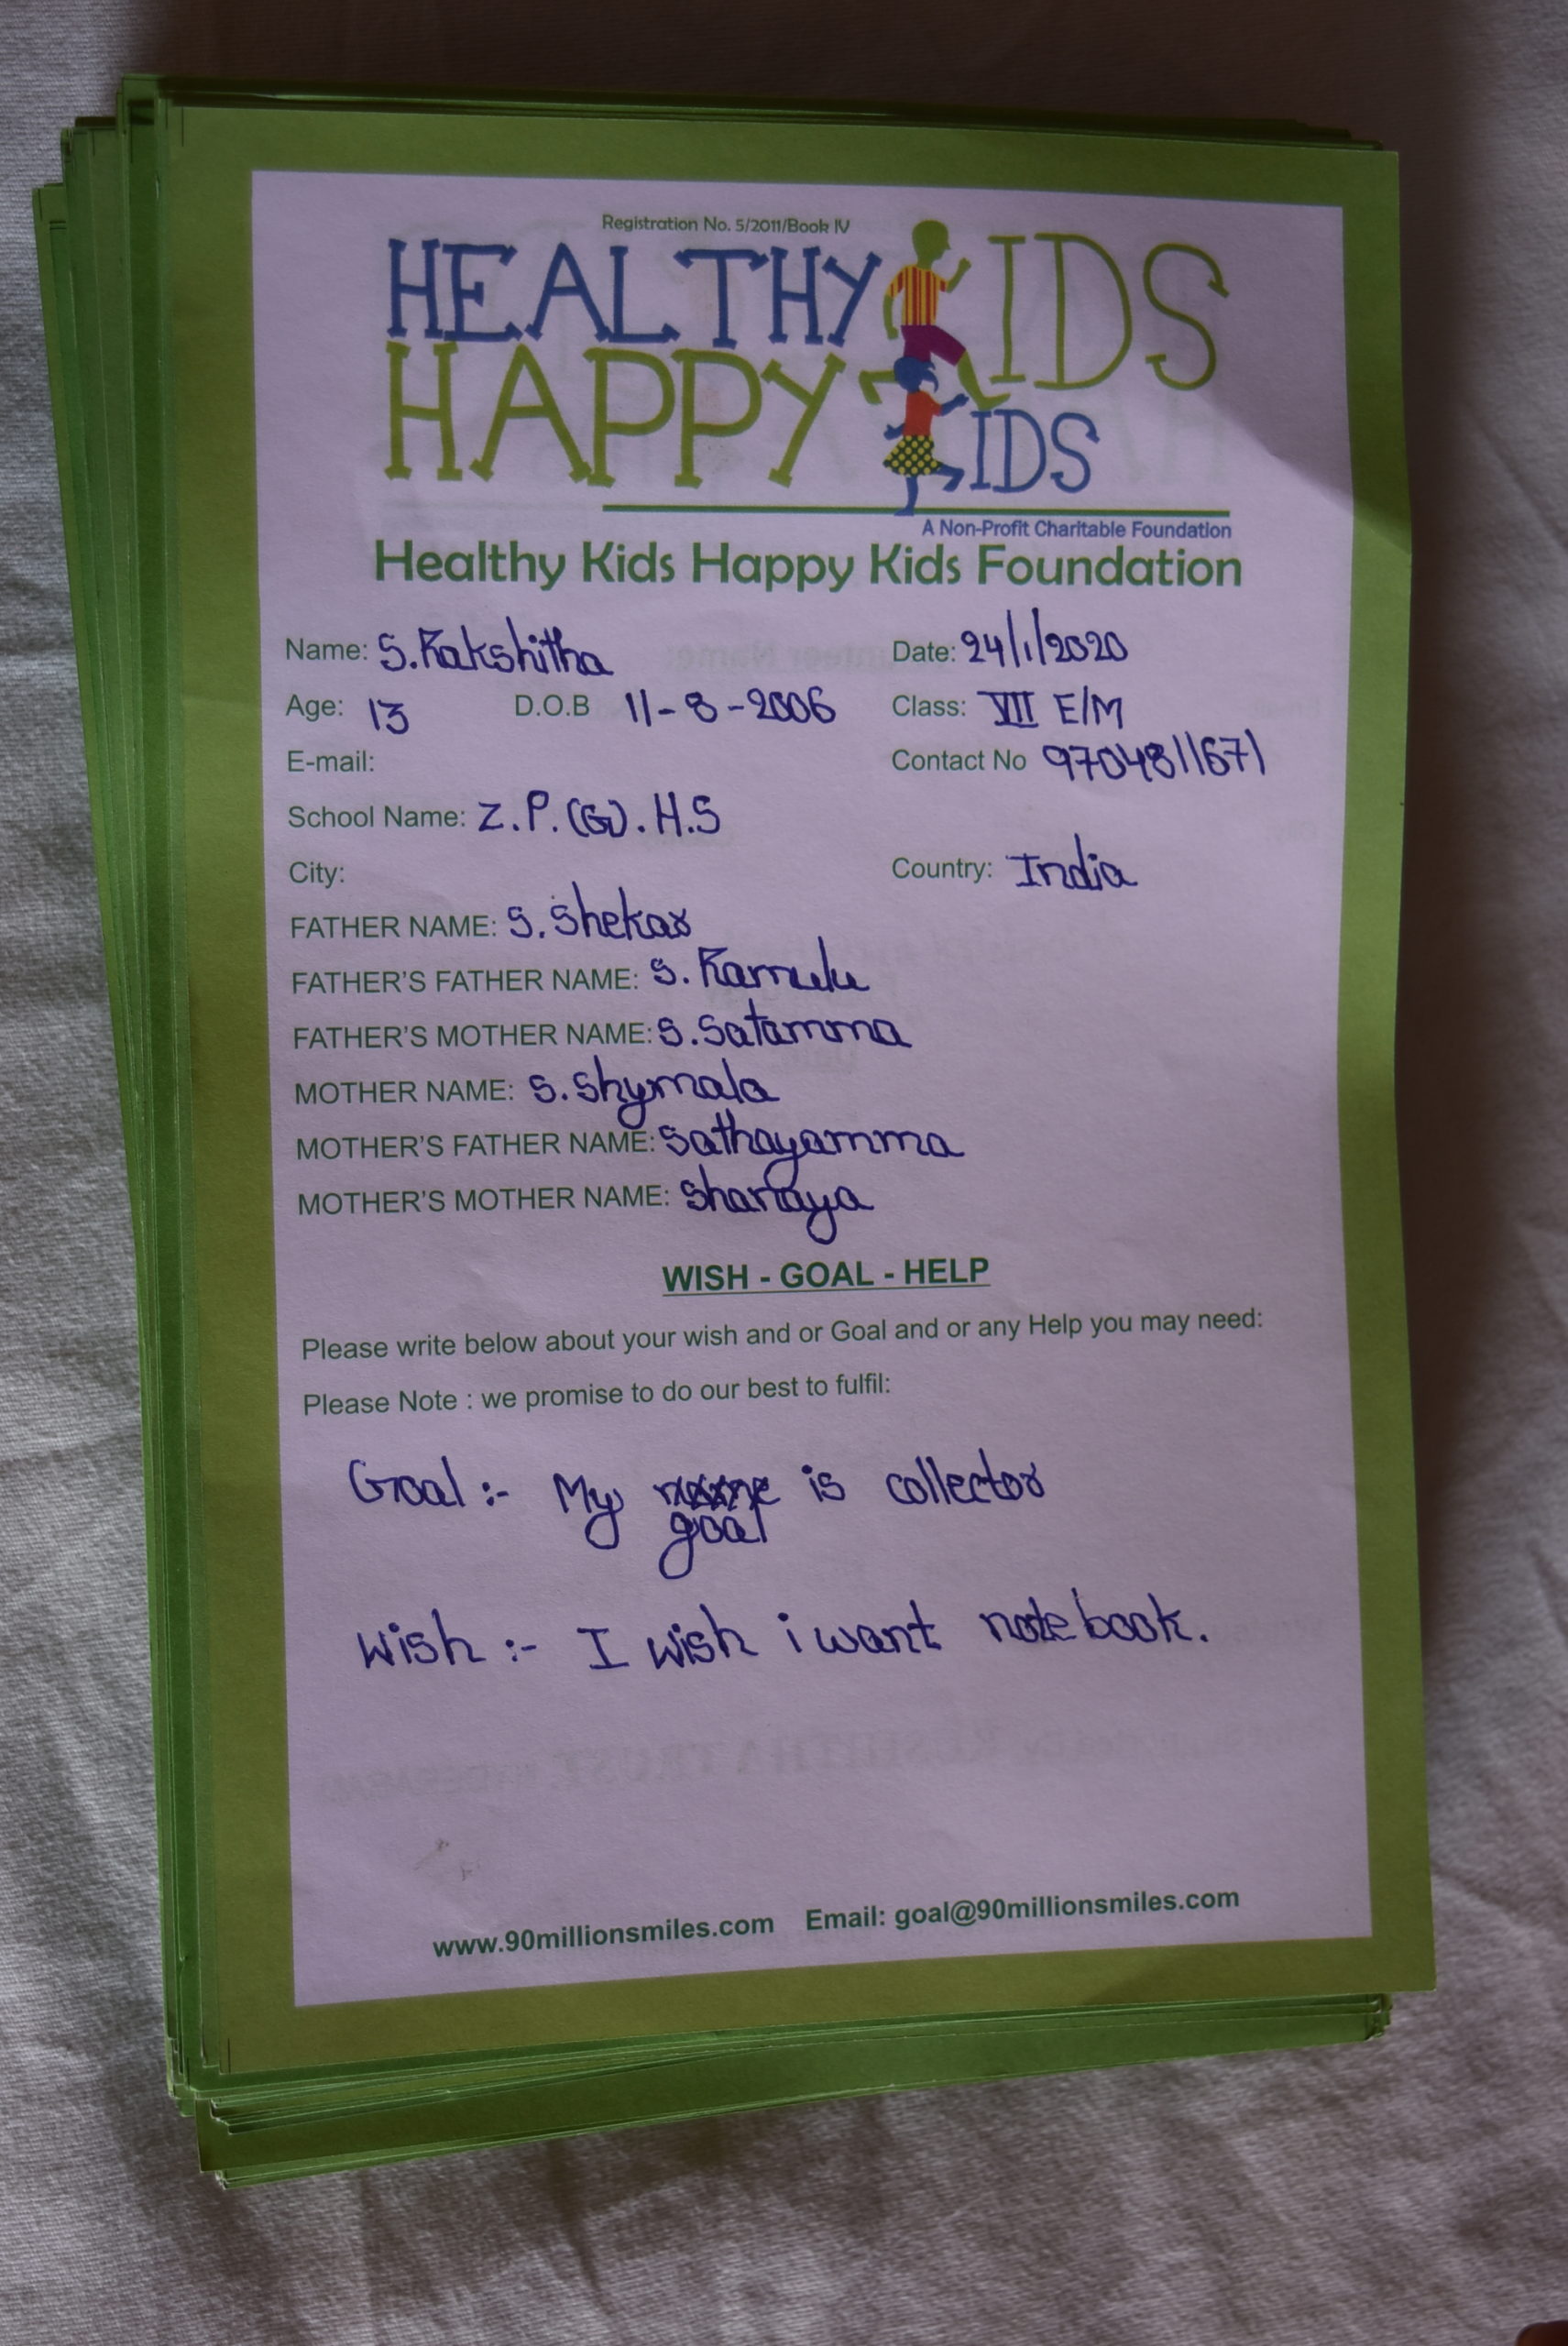 Registration No. 5/2011/Book IV
HEALTHY KIDS
HAPPY KIDS
A Non-Profit Charitable Foundation
Healthy Kids Happy Kids Foundation
Name: S.Rakshitha Date: 24/1/2020
Age: 13 D.O.B 11-8-2006 Class: VII E/M
E-mail: Contact No 9704811671
School Name: Z.P.(G).H.S
City: Country: India
FATHER NAME: S. Shekar
FATHER'S FATHER NAME: S. Ramulu
FATHER'S MOTHER NAME: S.Satamma
MOTHER NAME: S.Shymala
MOTHER'S FATHER NAME: Sathayamma
MOTHER'S MOTHER NAME: Shantaya
WISH - GOAL - HELP
Please write below about your wish and or Goal and or any Help you may need:
Please Note : we promise to do our best to fulfil:
Goal :- My name is collector
goal
Wish :- I wish i want notebook.
www.90millionsmiles.com Email: goal@90millionsmiles.com